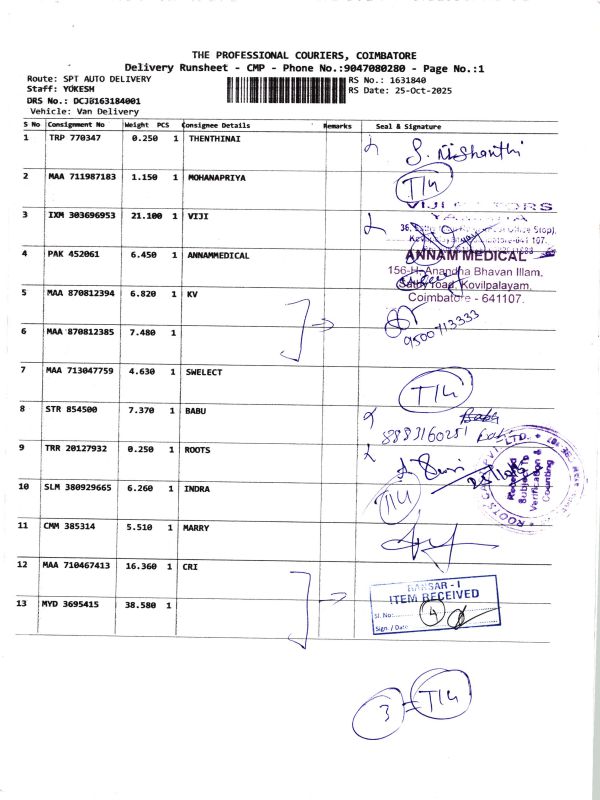 THE PROFESSIONAL COURIERS, COIMBATORE
Delivery Runsheet - CMP - Phone No.:9047080280 - Page No.:1
Route: SPT AUTO DELIVERY
RS No.: 1631840
Staff: YOKESH
RS Date: 25-Oct-2025
DRS No.: DCJB163184001
Vehicle: Van Delivery
S No Consignment No Weight PCS Consignee Details Remarks Seal & Signature
1 TRP 770347 0.250 1 THENTHINAI S. Nishanthi
2 MAA 711987183 1.150 1 MOHANAPRIYA T/4
3 IXM 303696953 21.100 1 VIJI
4 PAK 452061 6.450 1 ANNAMMEDICAL
ANNAM MEDICAL
156-H, Anandha Bhavan Illam,
Sathy road, Kovilpalayam,
Coimbatore - 641107.
5 MAA 870812394 6.820 1 KV
9500713333
6 MAA 870812385 7.480 1
7 MAA 713047759 4.630 1 SWELECT T/4
8 STR 854500 7.370 1 BABU Babu
8883160251
9 TRR 20127932 0.250 1 ROOTS
Received
Subject To
Verification &
Counting
10 SLM 380929665 6.260 1 INDRA T/4
11 CMM 385314 5.510 1 MARRY
12 MAA 710467413 16.360 1 CRI
ITEM RECEIVED
Sl. No: 4
Sign. / Date
13 MYD 3695415 38.580 1
3 = T/4